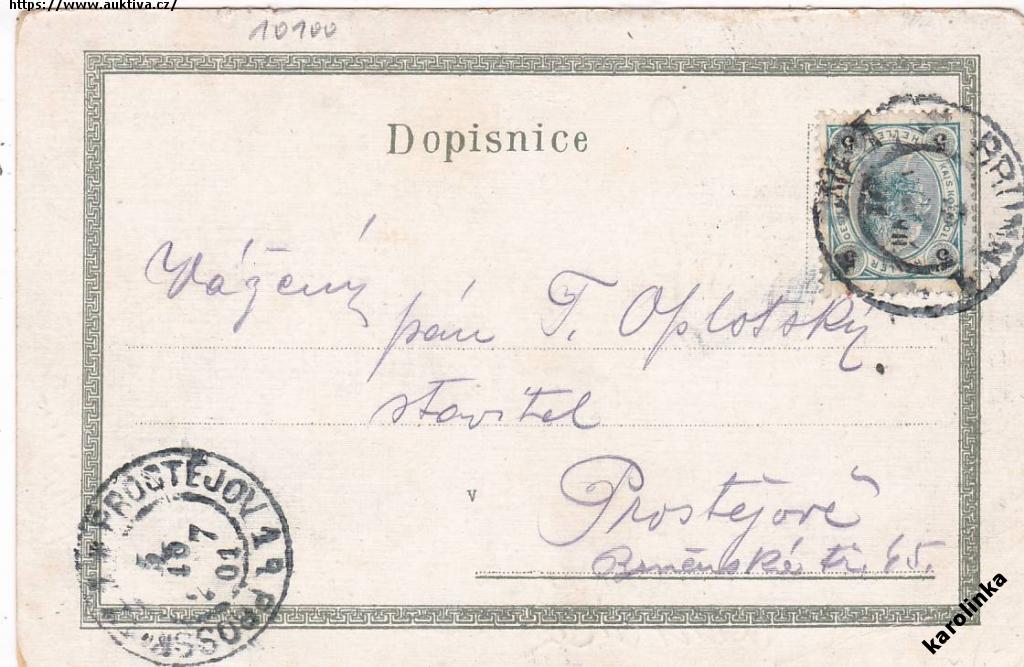 https://www.auktiva.cz/
10100
Dopisnice
5 HELLER 5
5 HELLER 5
Vážený
pán T. Oplotský
stavitel
v Prostějově
Brněnské tř. 65.
PROSTĚJOV 1
15 7 01
PROSSN
karolinka